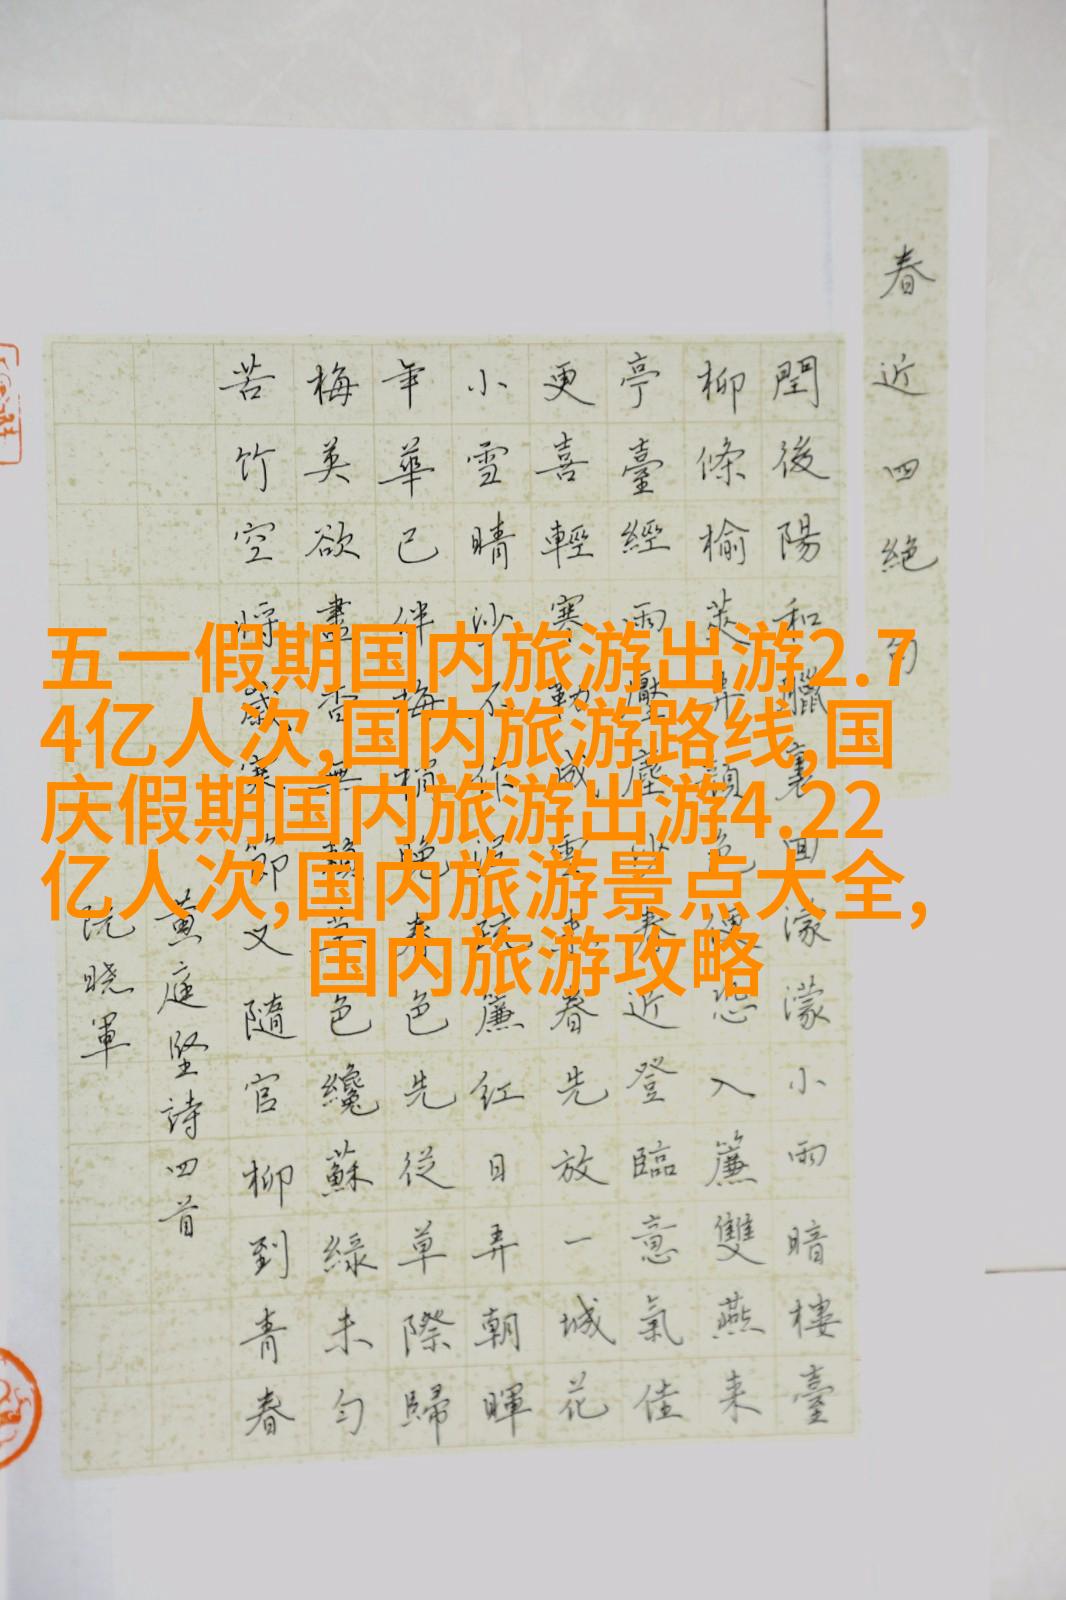 春近四絕句
閏後陽和臘裏回濛濛小雨暗樓臺
柳條榆莢弄顏色便恐入簾雙燕來
亭臺經雨壓塵沙春近登臨意氣佳
更喜輕寒勒成雪未春先放一城花
小雪晴沙不作泥疏簾紅日弄朝暉
年華已伴梅梢晚春色先從草際歸
梅英欲盡香無賴草色纔蘇綠未勻
苦竹空將歲寒節又隨官柳到青春
黃庭堅詩四首
阮晓軍
五一假期国内旅游出游2.7
4亿人次,国内旅游路线,国
庆假期国内旅游出游4.22
亿人次,国内旅游景点大全,
国内旅游攻略